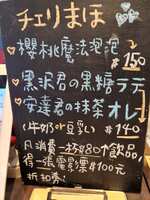 チェリまほ
♡櫻桃魔法泡泡
$150
♡黒沢君の黒糖ラテ
♡安達君の抹茶オレ
(牛奶or豆乳) $140
凡消費一杯$80↑飲品
得一張電影票$100元
折扣券!